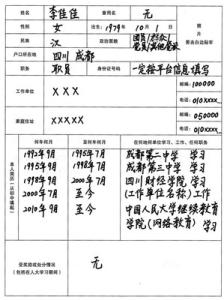 姓名 李佳佳 曾用名 无
性别 女 出生: 1979年 10月 1日
民族 汉 政治面貌 团员/群众/党员/其他党派
户口所在地 四川 成都
职务 职员 身份证号码 一定按平台信息填写
照片
工作单位 XXX 邮编:100000
电话:010xxxx
家庭住址 XXXXX 邮编:050000
电话:010XXXX
本人简历(从初中填起)
何年何月 至何年何月 在何地何单位学习、工作、任何职务
1992年9月 1995年7月 成都第二中学 学习
1995年9月 1998年7月 成都第三中学 学习
1998年9月 2000年7月 四川财经学院 学习
2000年7月 至今 (工作单位名称) 工作
2010年9月 至今 中国人民大学继续教育学院(网络教育) 学习
受奖惩或处分情况(包括在人大学习期间)
无